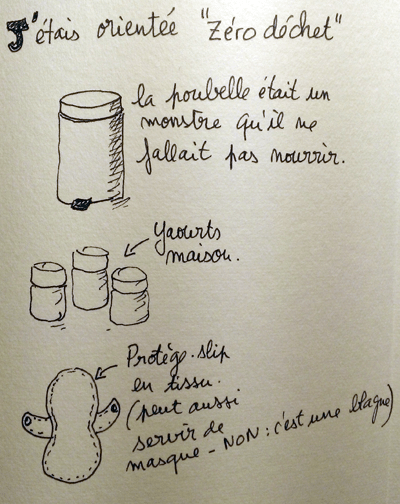 J'étais orientée "Zéro déchet"
la poubelle était un
monstre qu'il ne
fallait pas nourrir.
Yaourts
maison.
Protège-slip
en tissu.
(peut aussi
servir de
masque - NON : c'est une blague)